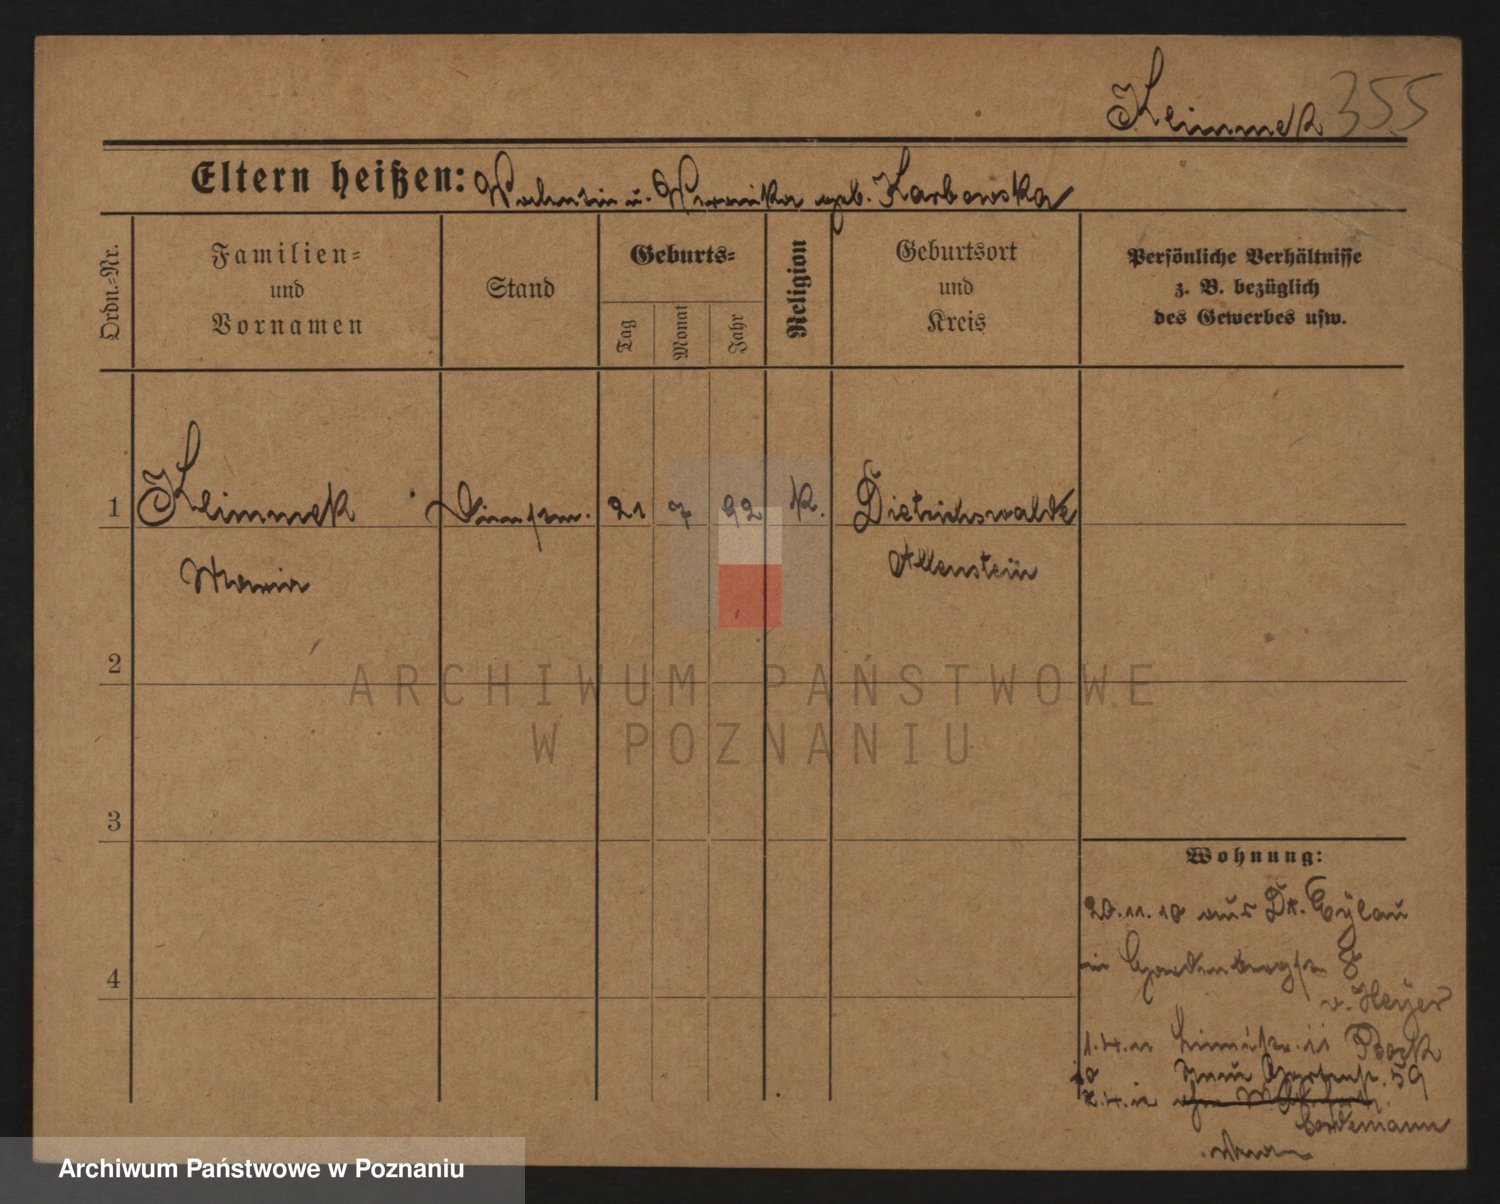 Klimmek 355
Eltern heißen: Valentin u. Veronika geb. Karbowska
Ordn.-Nr.
Familien=
und
Vornamen
Stand
Geburts=
Tag
Monat
Jahr
Religion
Geburtsort
und
Kreis
Persönliche Verhältnisse
z. B. bezüglich
des Gewerbes usw.
1 Klimmek 21 7 92 K. Dietrichswalde
Maria Allenstein
2
ARCHIWUM PAŃSTWOWE
W POZNANIU
3
Wohnung:
20.11.10 aus Dt. Eylau
4
in 8
v. Heyer
1.4.11
59
Archiwum Państwowe w Poznaniu